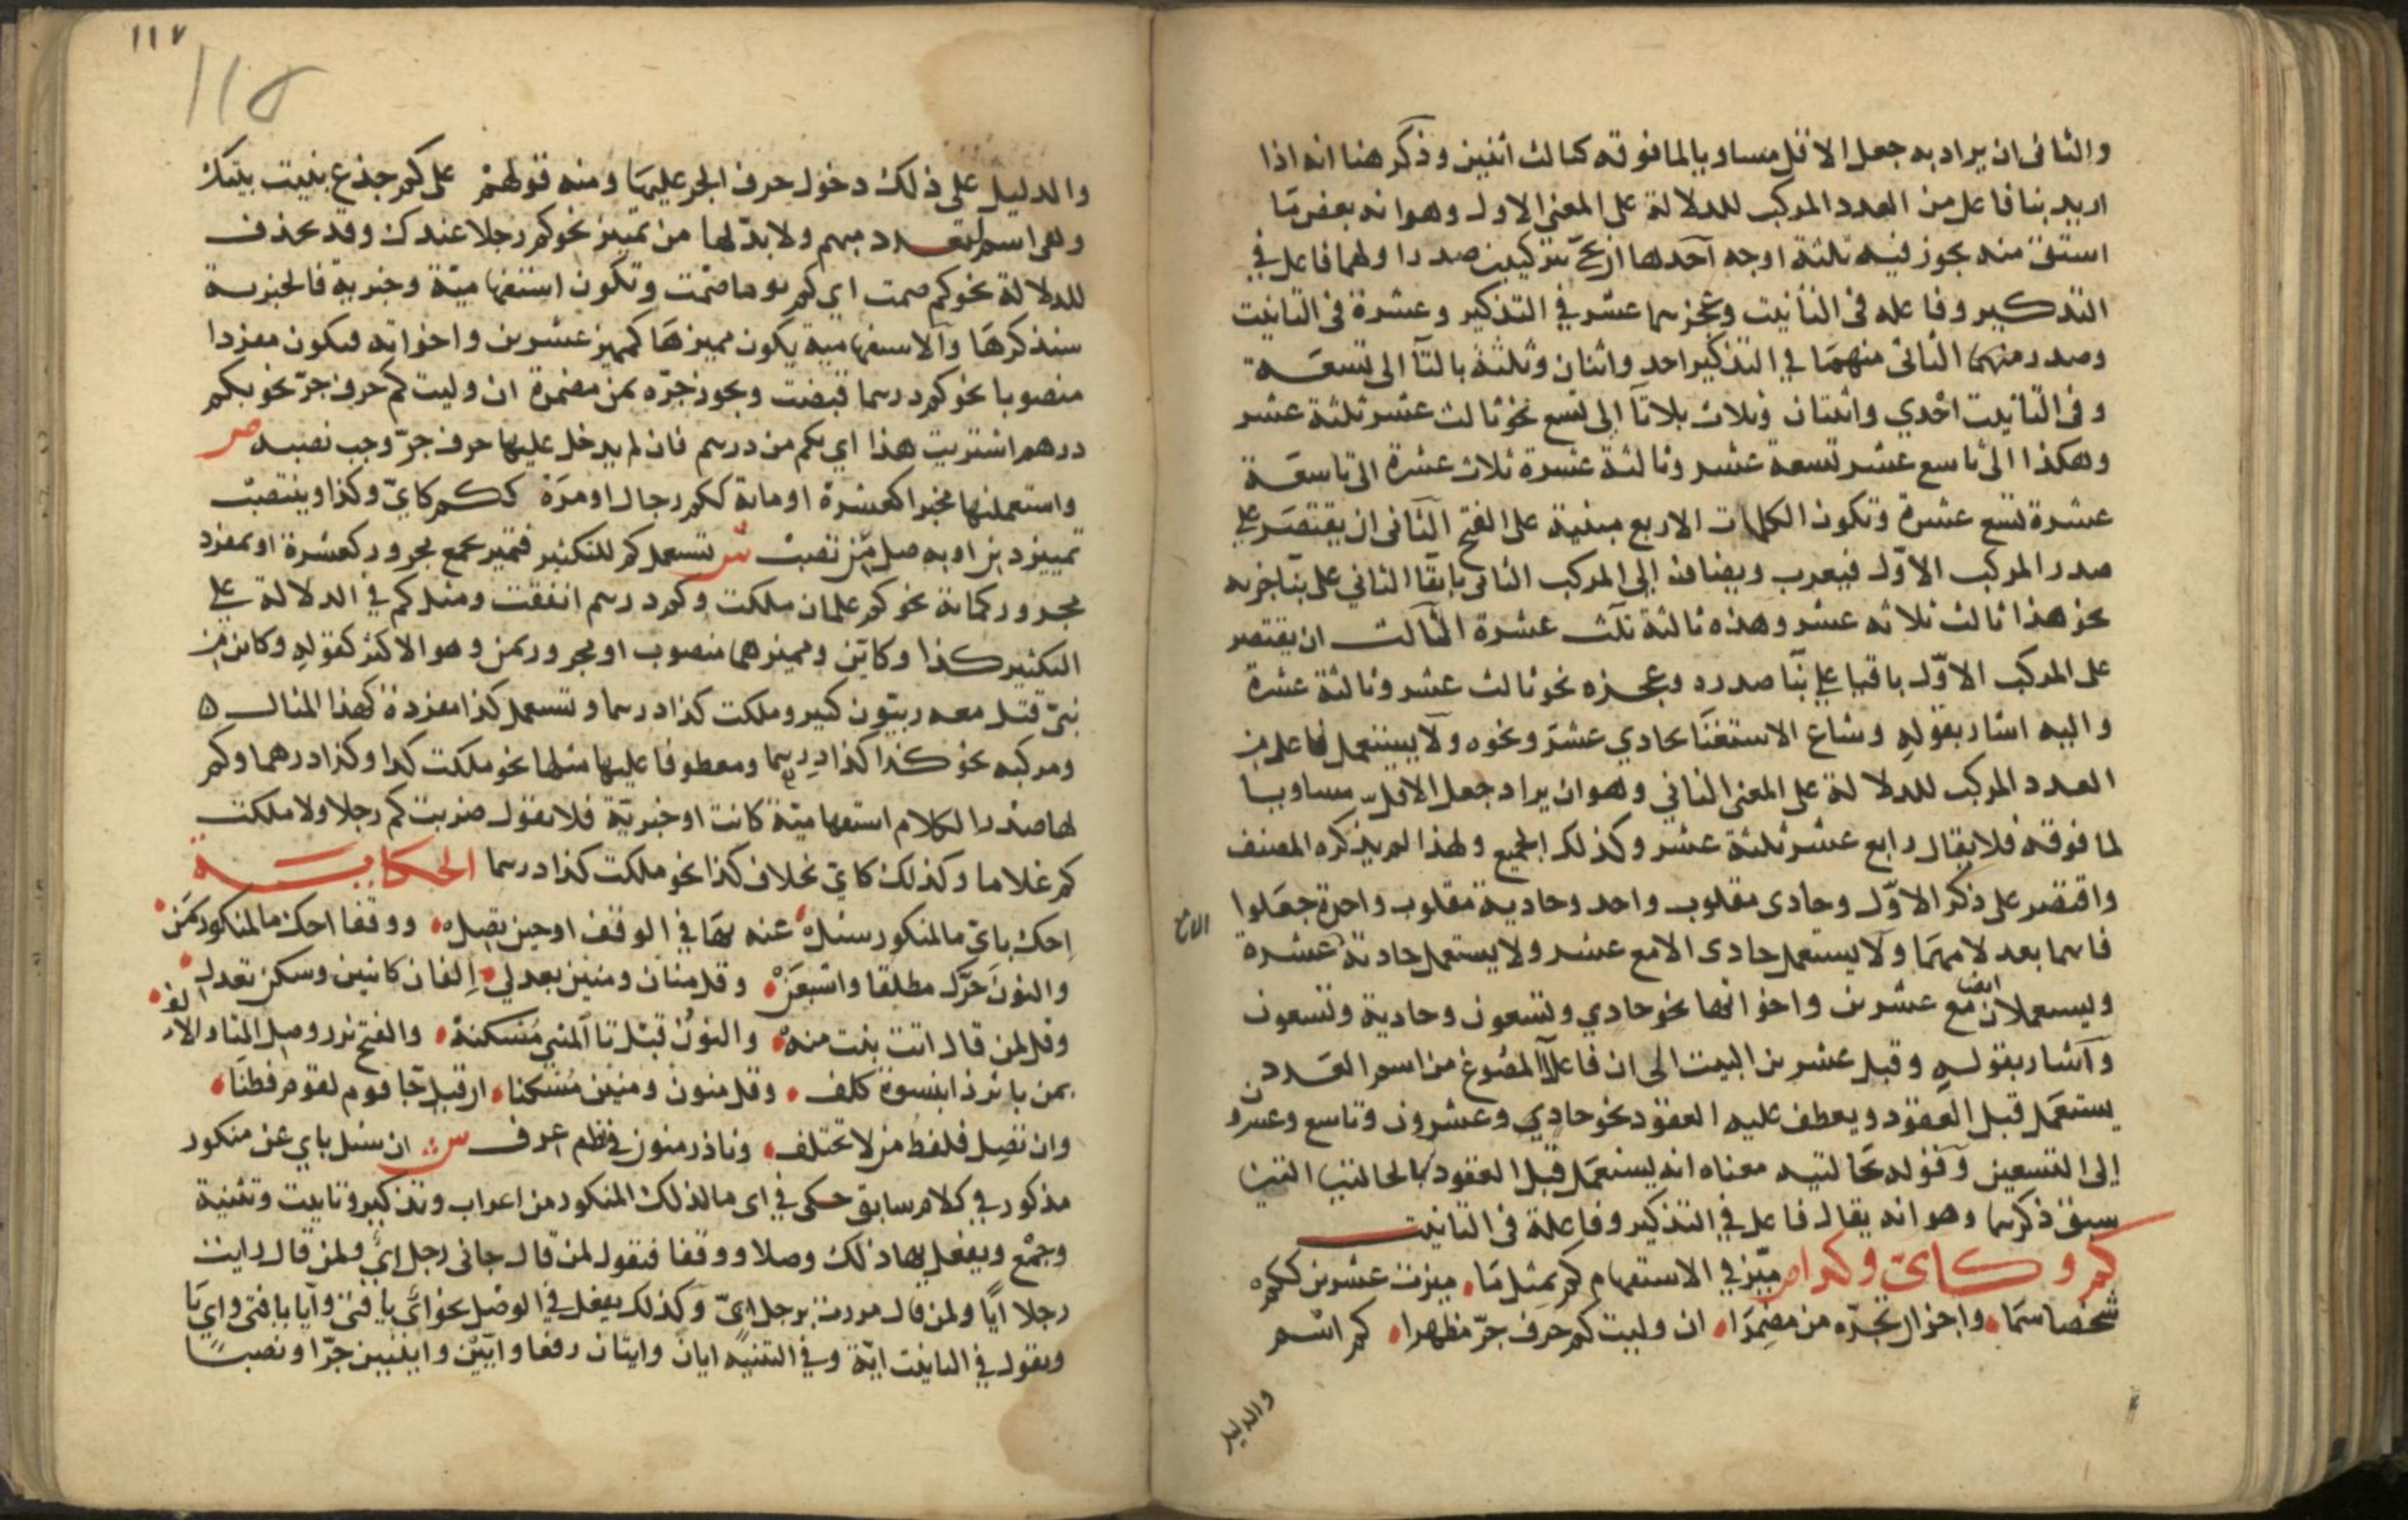 والثانى ان يراد به جعل الاقل مساويا لما فوقه كثالث اثنين وذكر هنا انه اذا
اريد بنا فاعل من العدد المركب للدلالة على المعنى الاول وهو انه بعض ما
اشتق منه يجوز فيه ثلثة اوجه احدها ان يجئ بتركيبين صدر اولهما فاعل في
التذكير وفاعله فى التأنيث وعجزهما عشر في التذكير وعشرة فى التأنيث
وصدر الثانى منهما في التذكير احد واثنان وثلثة بالتا الى تسعة
وفى التأنيث احدي واثنتان وثلاث بلا تا الى تسع نحو ثالث عشر ثلثة عشر
وهكذا الى تاسع عشر تسعة عشر وثالثة عشرة ثلاث عشرة الى تاسعة
عشرة تسع عشرة وتكون الكلمات الاربع مبنية على الفتح الثانى ان يقتصر على
صدر المركب الاوّل فيعرب ويضاف الى المركب الثانى بابقا الثاني على بنا جزيه
نحو هذا ثالث ثلاثه عشر وهذه ثالثة ثلث عشرة الثالث ان يقتصر
على المركب الاوّل باقيا على بنا صدره وعجزه نحو ثالث عشر وثالثة عشرة
واليه اشار بقوله وشاع الاستغنا بحادي عشر ونحوه ولا يستعمل فاعل من
العدد المركب للدلالة على المعنى الثاني وهو ان يراد جعل الاقل مساويا
لما فوقه فلا يقال رابع عشر ثلثة عشر وكذلك الجميع ولهذا لم يذكره المصنف
واقتصر على ذكر الاوّل وحادى مقلوب واحد وحادية مقلوب واحدة جعلوا
فاهما بعد لامهما ولا يستعمل حادى الا مع عشر ولا يستعمل حادية عشرة
ويستعملان ايضا مع عشرين واخواتها نحو حادي وتسعون وحادية وتسعون
واشار بقوله وقبل عشرين البيت الى ان فاعلا المصوغ من اسم العدد
يستعمل قبل العقود ويعطف عليه العقود نحو حادي وعشرون وتاسع وعشرون
الى التسعين وقوله بحالتيه معناه انه يستعمل قبل العقود بالحالتين اللتين
سبق ذكرهما وهو انه يقال فاعل في التذكير وفاعلة فى التانيث
كم وكاىّ وكذا ص ميّز في الاستفهام كم بمثل ما، ميزت عشرين ككم
شخصا سما، واجز ان تجرّه من مضمرا، ان وليت كم حرف جرّ مظهرا، كم اسم
والدليل
والدليل على ذلك دخول حرف الجر عليها ومنه قولهم على كم جذع بنيت بيتك
وهى اسم لعدد مبهم ولا بدّ لها من تمييز نحو كم رجلا عندك وقد يحذف
للدلالة نحو كم صمت اي كم يوما صمت وتكون استفهامية وخبرية فالخبرية
سنذكرها والاستفهامية يكون مميزها كمميز عشرين واخواته فيكون مفردا
منصوبا نحو كم درهما قبضت ويجوز جرّه بمن مضمرة ان وليت كم حرف جرّ نحو بكم
درهم اشتريت هذا اي بكم من درهم فان لم يدخل عليها حرف جرّ وجب نصبه ص
واستعملنها مخبرا كعشرة او ماية ككم رجال او مرة ككم كايّ وكذا وينتصب
تمييز ذين او به صل من تصب ش تستعمل كم للتكثير فتميز بجمع مجرور كعشرة او بمفرد
مجرور كماية نحو كم غلمان ملكت وكم درهم انفقت ومثل كم في الدلالة على
التكثير كذا وكاين ومميزهما منصوب او مجرور بمن وهو الاكثر كقوله وكاين من
نبىّ قتل معه ربيّون كثير وملكت كذا درهما وتستعمل كذا مفردة كهذا المثال
ومركبه نحو كذا كذا درهما ومعطوفا عليها مثلها نحو ملكت كذا وكذا درهما وكم
لها صدر الكلام استفهامية كانت او خبرية فلا تقول ضربت كم رجلا ولا ملكت
كم غلاما وكذلك كاىّ بخلاف كذا نحو ملكت كذا درهما الحكاية
احك باىّ ما لمنكور سئل، عنه بها في الوقف او حين تصل، ووقفا احك ما لمنكور بمن
والنون حرّك مطلقا واشبعن، وقل منان ومنين بعد لي، الفان كابنين وسكن تعدل،
وقل لمن قال اتت بنت منه، والنون قبل تا المثنى مسكنة، والفتح نزر وصل التا والالف،
بمن باثر ذا بنسوة كلف، وقل منون ومنين مسكنا، ان قيل جا قوم لقوم فطنا،
وان تصل فلفظ من لا يختلف، ونادر منون في نظم عرف ش ان سئل باي عن منكور
مذكور في كلام سابق حكى في اى ما لذلك المنكور من اعراب وتذكير وتانيث وتثنية
وجمع ويفعل بها ذلك وصلا ووقفا فتقول لمن قال جانى رجل ايّ ولمن قال رايت
رجلا ايّا ولمن قال مررت برجل ايّ وكذلك يفعل في الوصل نحو ايّ يا فتى وايا يا فتى واي يا
وتقول في التانيث ايّة وفي التثنية ايان وايتان رفعا وايّين وايتين جرّا ونصبا
١١٧